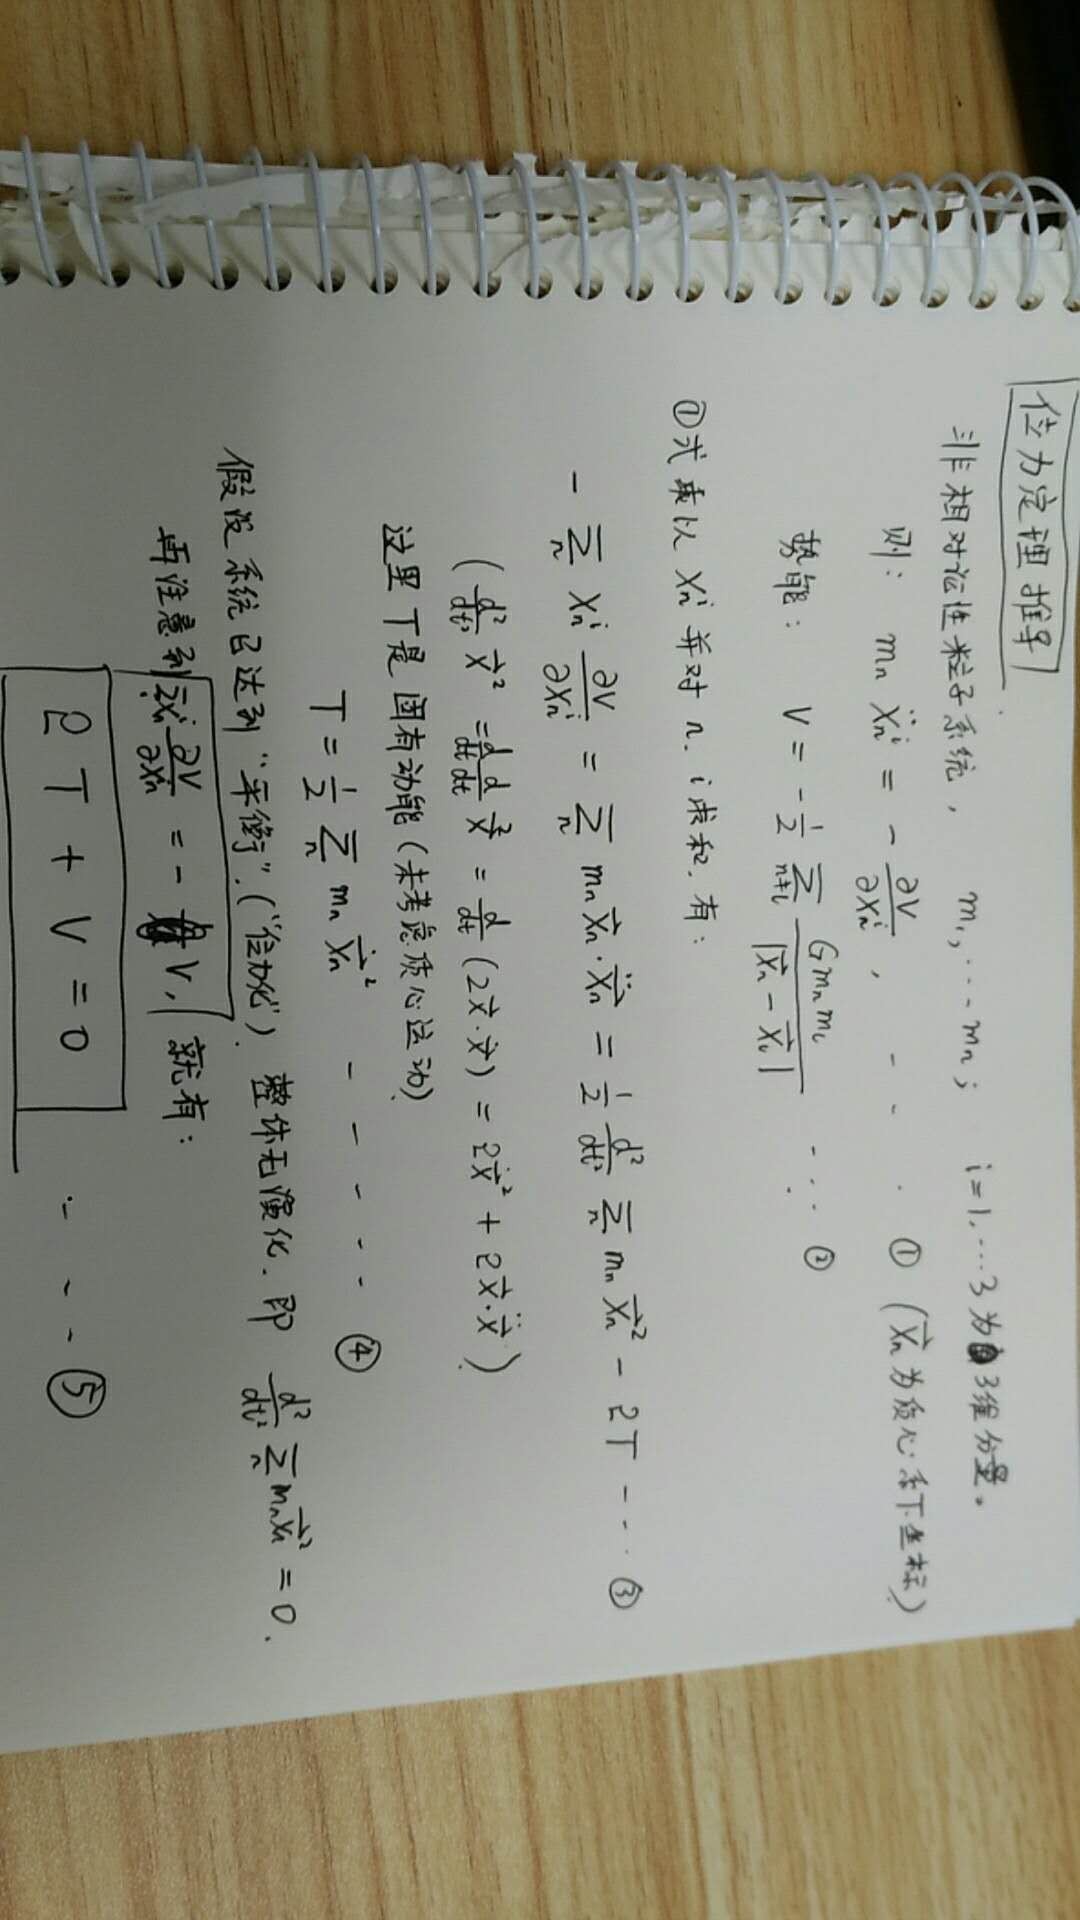 位力定理推导
非相对论性粒子系统, m₁, ... mₙ; i=1, ...3 为 3维分量。
则: mₙ ẍₙⁱ = - ∂V/∂xₙⁱ , - - . ① (x⃗ₙ 为质心系下坐标)
势能: V = -1/2 Σ_{n≠l} G mₙ m_l / |x⃗ₙ - x⃗_l| - . . . ②
①式乘以 xₙⁱ 并对 n. i 求和. 有:
- Σₙ xₙⁱ ∂V/∂xₙⁱ = Σₙ mₙ x⃗ₙ · ẍ⃗ₙ = 1/2 d²/dt² Σₙ mₙ x⃗ₙ² - 2T - ... ③
( d²/dt² x⃗² = d/dt d/dt x⃗² = d/dt (2x⃗ · ẋ⃗) = 2ẋ⃗² + 2x⃗ · ẍ⃗ )
这里 T 是 固有动能 (未考虑质心运动)
T = 1/2 Σₙ mₙ ẋ⃗ₙ² - - - - - ④
假设系统已达到“平衡”. (“位力化”). 整体无演化. 即 d²/dt² Σₙ mₙ x⃗ₙ² = 0.
再注意到 Σxₙⁱ ∂V/∂xₙⁱ = - V, 就有:
2T + V = 0 - - - ⑤